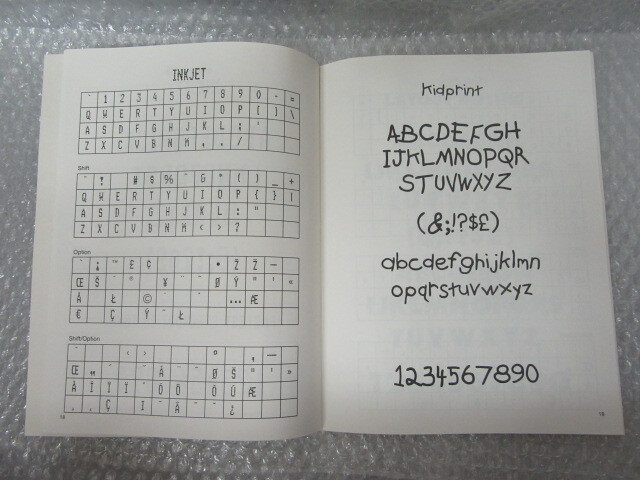 INKJET
` 1 2 3 4 5 6 7 8 9 0 - =
Q W E R T Y U I O P [ ] \
A S D F G H J K L ; '
Z X C V B N M , . /
Shift
Q W E R T Y U I O P { } |
A S D F G H J K L : "
Z X C V B N M < > ?
Option
Shift/Option
18
Kidprint
ABCDEFGH
IJKLMNOPQR
STUVWXYZ
(&;!?$£)
abcdefghijklmn
opqrstuvwxyz
1234567890
19